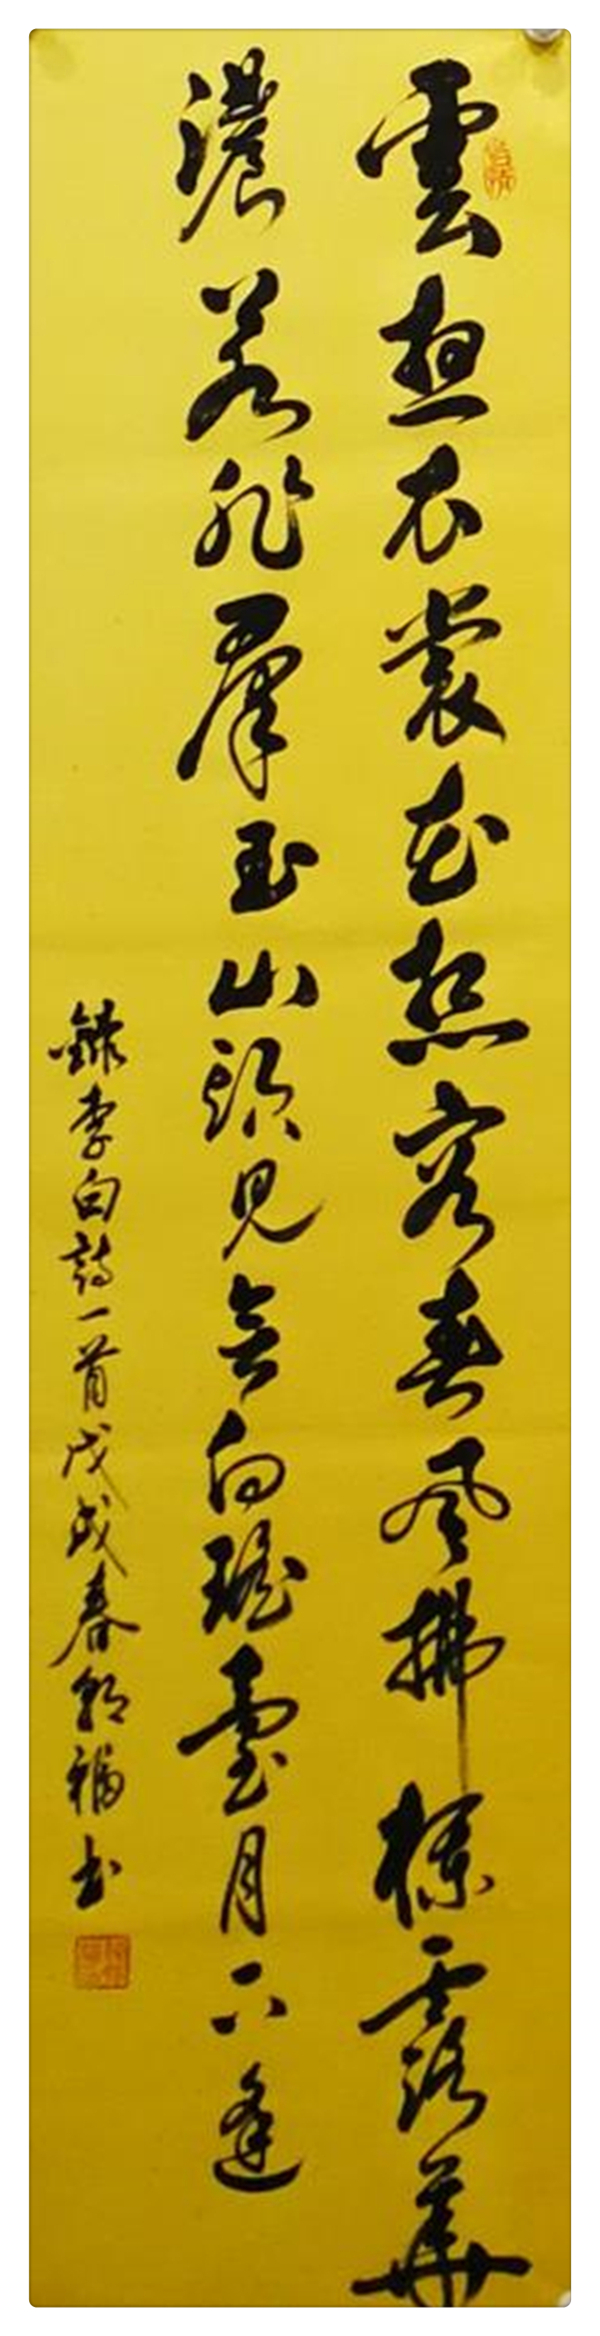 雲想衣裳花想容春風拂檻露華
濃若非羣玉山頭見会向瑤臺月下逢
錄李白詩一首戊戌春福书